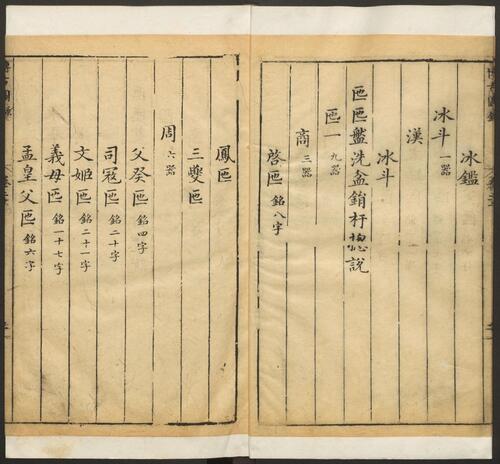 冰鑑
冰斗 一器
漢
冰斗
匜匜盤洗盆鋗杅總說
匜一 九器
商 三器
啓匜 銘八字
鳳匜
三夔匜
周 六器
父癸匜 銘四字
司寇匜 銘二十字
文姬匜 銘二十一字
義母匜 銘一十七字
孟皇父匜 銘六字